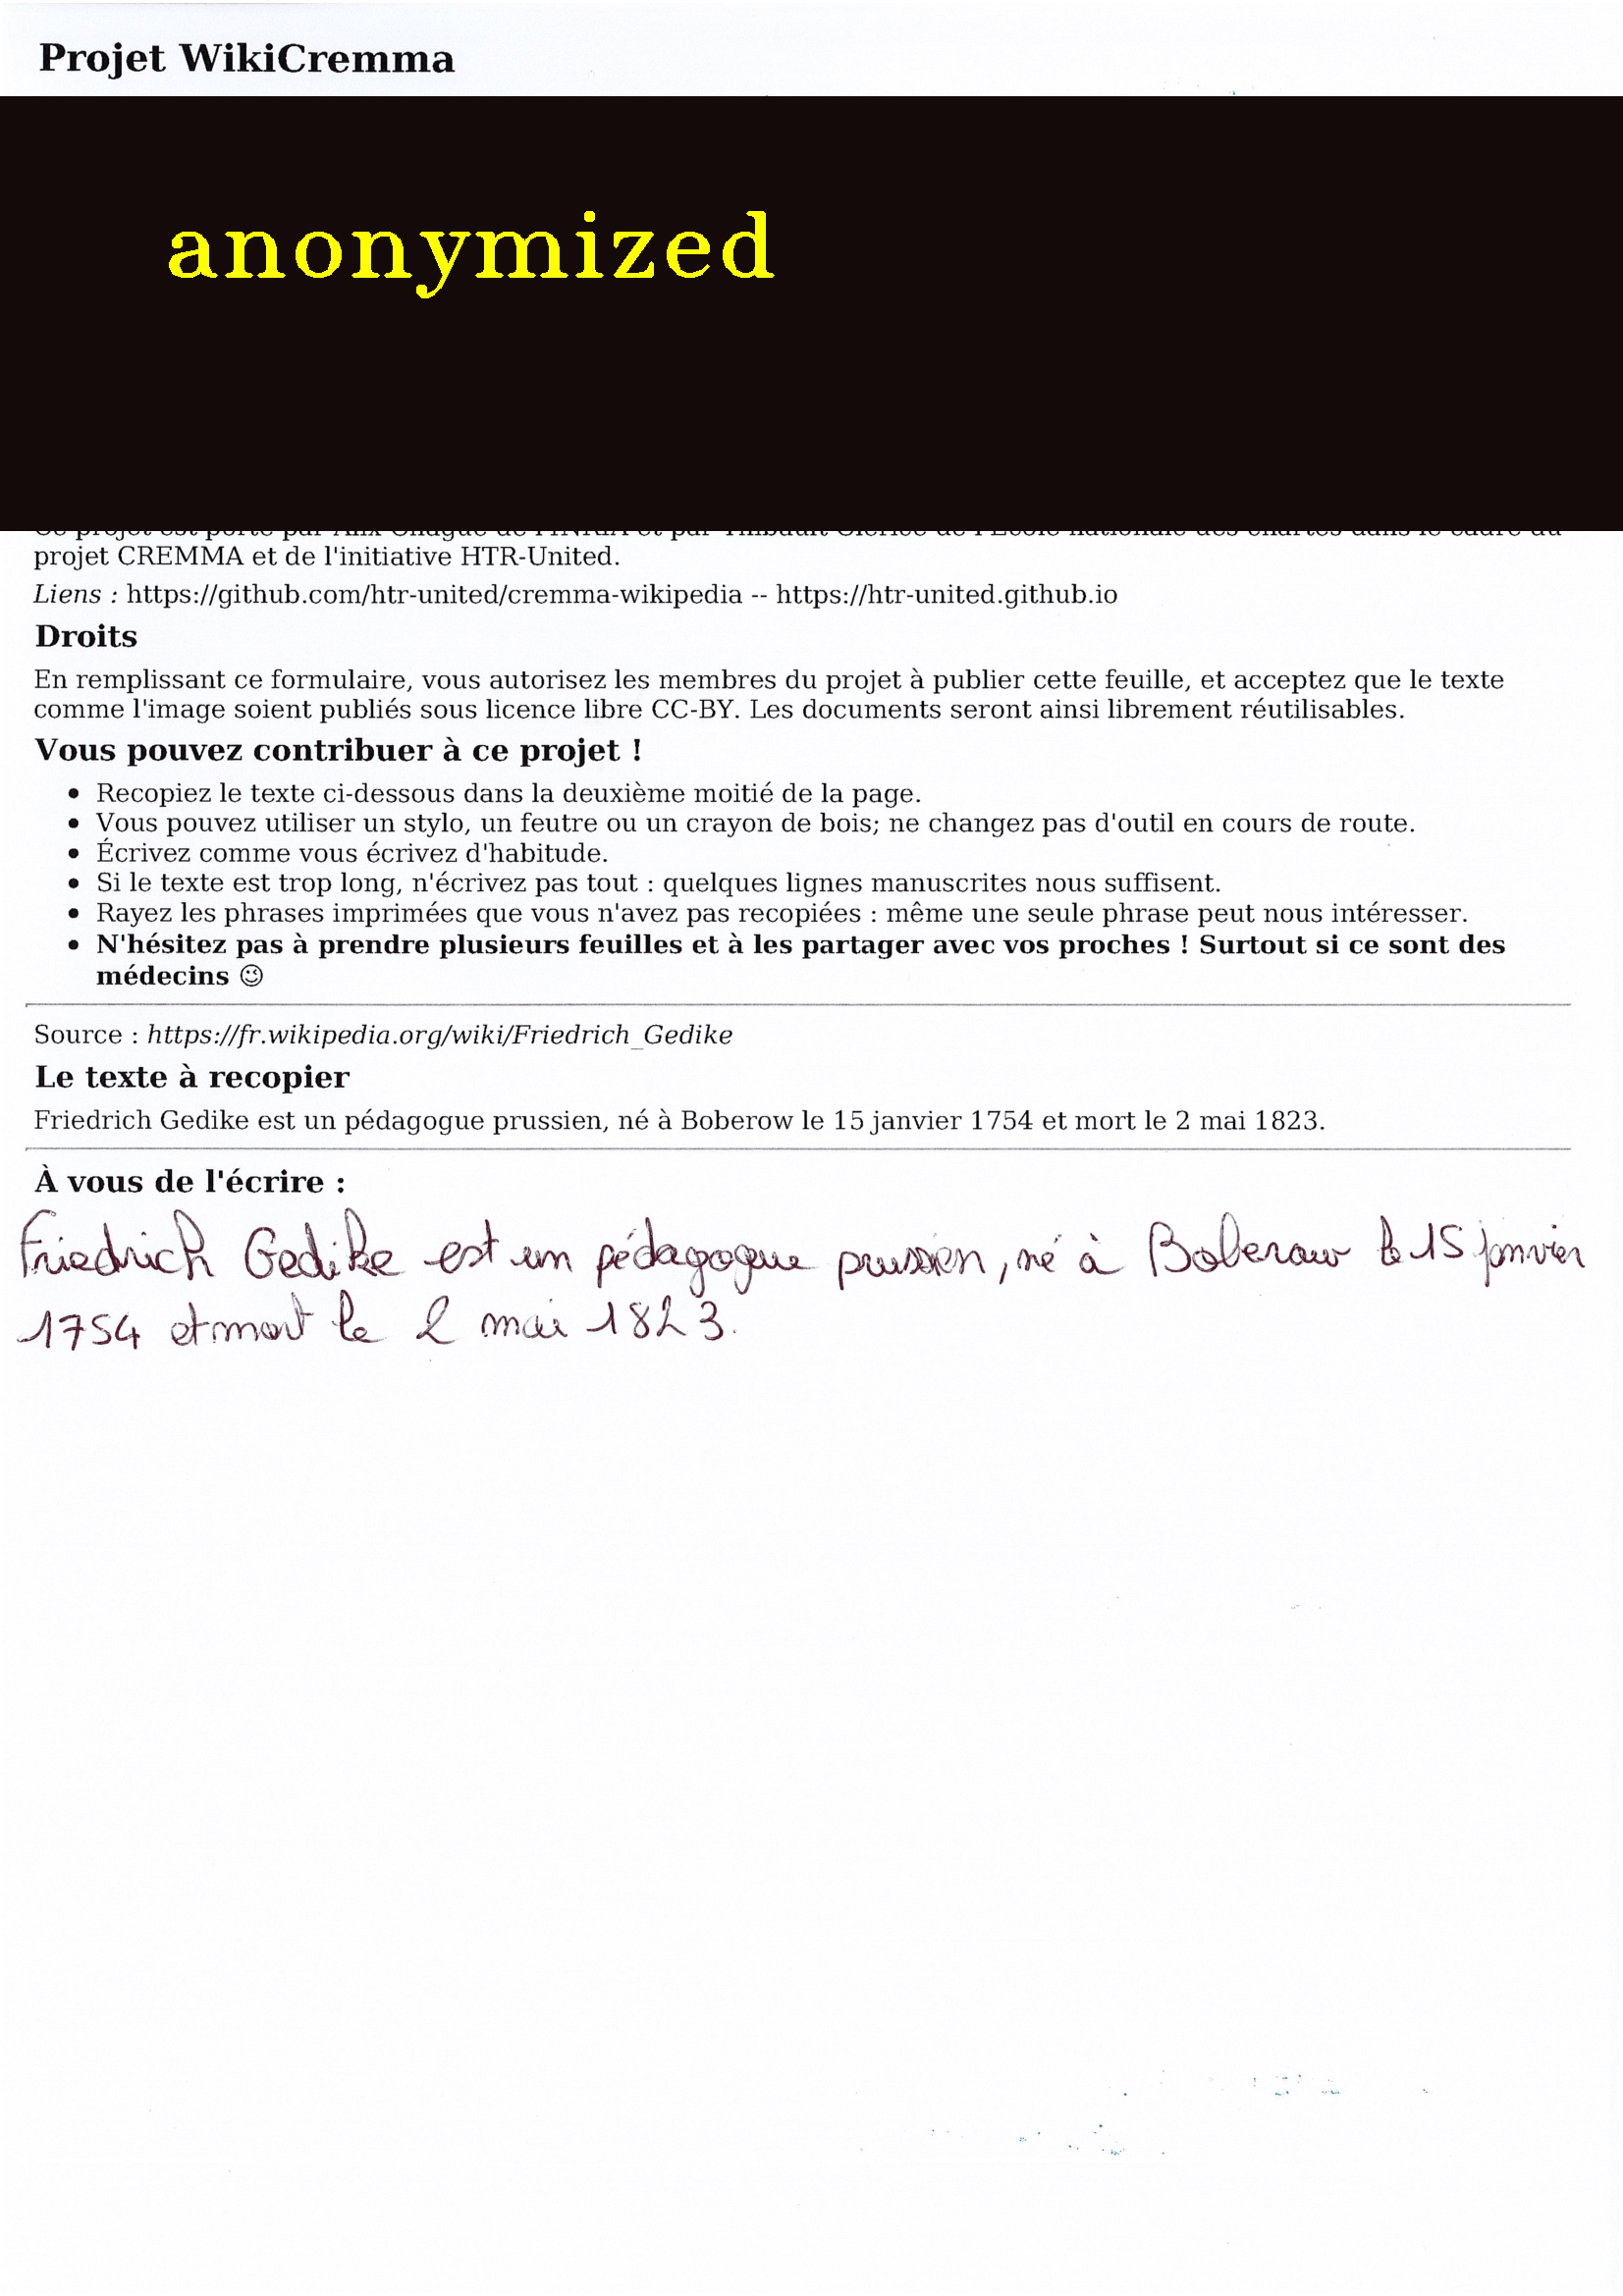 Projet WikiCremma
anonymized
Ce projet est porté par Alix Chagué de l'INRIA et par Thibault Clérice de l'École nationale des chartes dans le cadre du
projet CREMMA et de l'initiative HTR-United.
Liens : https://github.com/htr-united/cremma-wikipedia -- https://htr-united.github.io
Droits
En remplissant ce formulaire, vous autorisez les membres du projet à publier cette feuille, et acceptez que le texte
comme l'image soient publiés sous licence libre CC-BY. Les documents seront ainsi librement réutilisables.
Vous pouvez contribuer à ce projet !
• Recopiez le texte ci-dessous dans la deuxième moitié de la page.
• Vous pouvez utiliser un stylo, un feutre ou un crayon de bois; ne changez pas d'outil en cours de route.
• Écrivez comme vous écrivez d'habitude.
• Si le texte est trop long, n'écrivez pas tout : quelques lignes manuscrites nous suffisent.
• Rayez les phrases imprimées que vous n'avez pas recopiées : même une seule phrase peut nous intéresser.
• N'hésitez pas à prendre plusieurs feuilles et à les partager avec vos proches ! Surtout si ce sont des
médecins 😉
Source : https://fr.wikipedia.org/wiki/Friedrich_Gedike
Le texte à recopier
Friedrich Gedike est un pédagogue prussien, né à Boberow le 15 janvier 1754 et mort le 2 mai 1823.
À vous de l'écrire :
Friedrich Gedike est un pédagogue prussien, né à Boberow le 15 janvier
1754 et mort le 2 mai 1823.